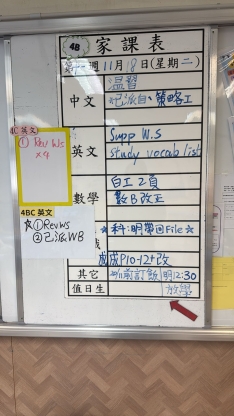 4B 家課表
週 11月18日(星期二)
中文
溫習
已派自、策略工
英文
Supp W.S
Study vocab list
數學
白工2頁
數B改正
☆科:明帶回File☆
成P10-12+改
其它
訂飯 12:30
值日生
放學
4C 英文
① Rev Ws
x4
4BC 英文
☆①Rev ws
②已派WB